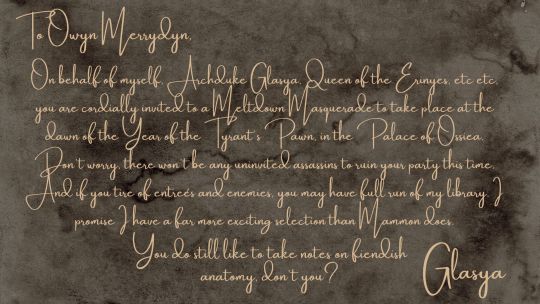 To Owyn Merrydyn,
On behalf of myself, Archduke Glasya, Queen of the Erinyes, etc etc,
you are cordially invited to a Meltdown Masquerade to take place at the
dawn of the Year of the Tyrant's Pawn, in the Palace of Osseia.
Don't worry, there won't be any uninvited assassins to ruin your party this time.
And if you tire of entreés and enemies, you may have full run of my library. I
promise I have a far more exciting selection than Mammon does.
You do still like to take notes on fiendish
anatomy, don't you?
Glasya